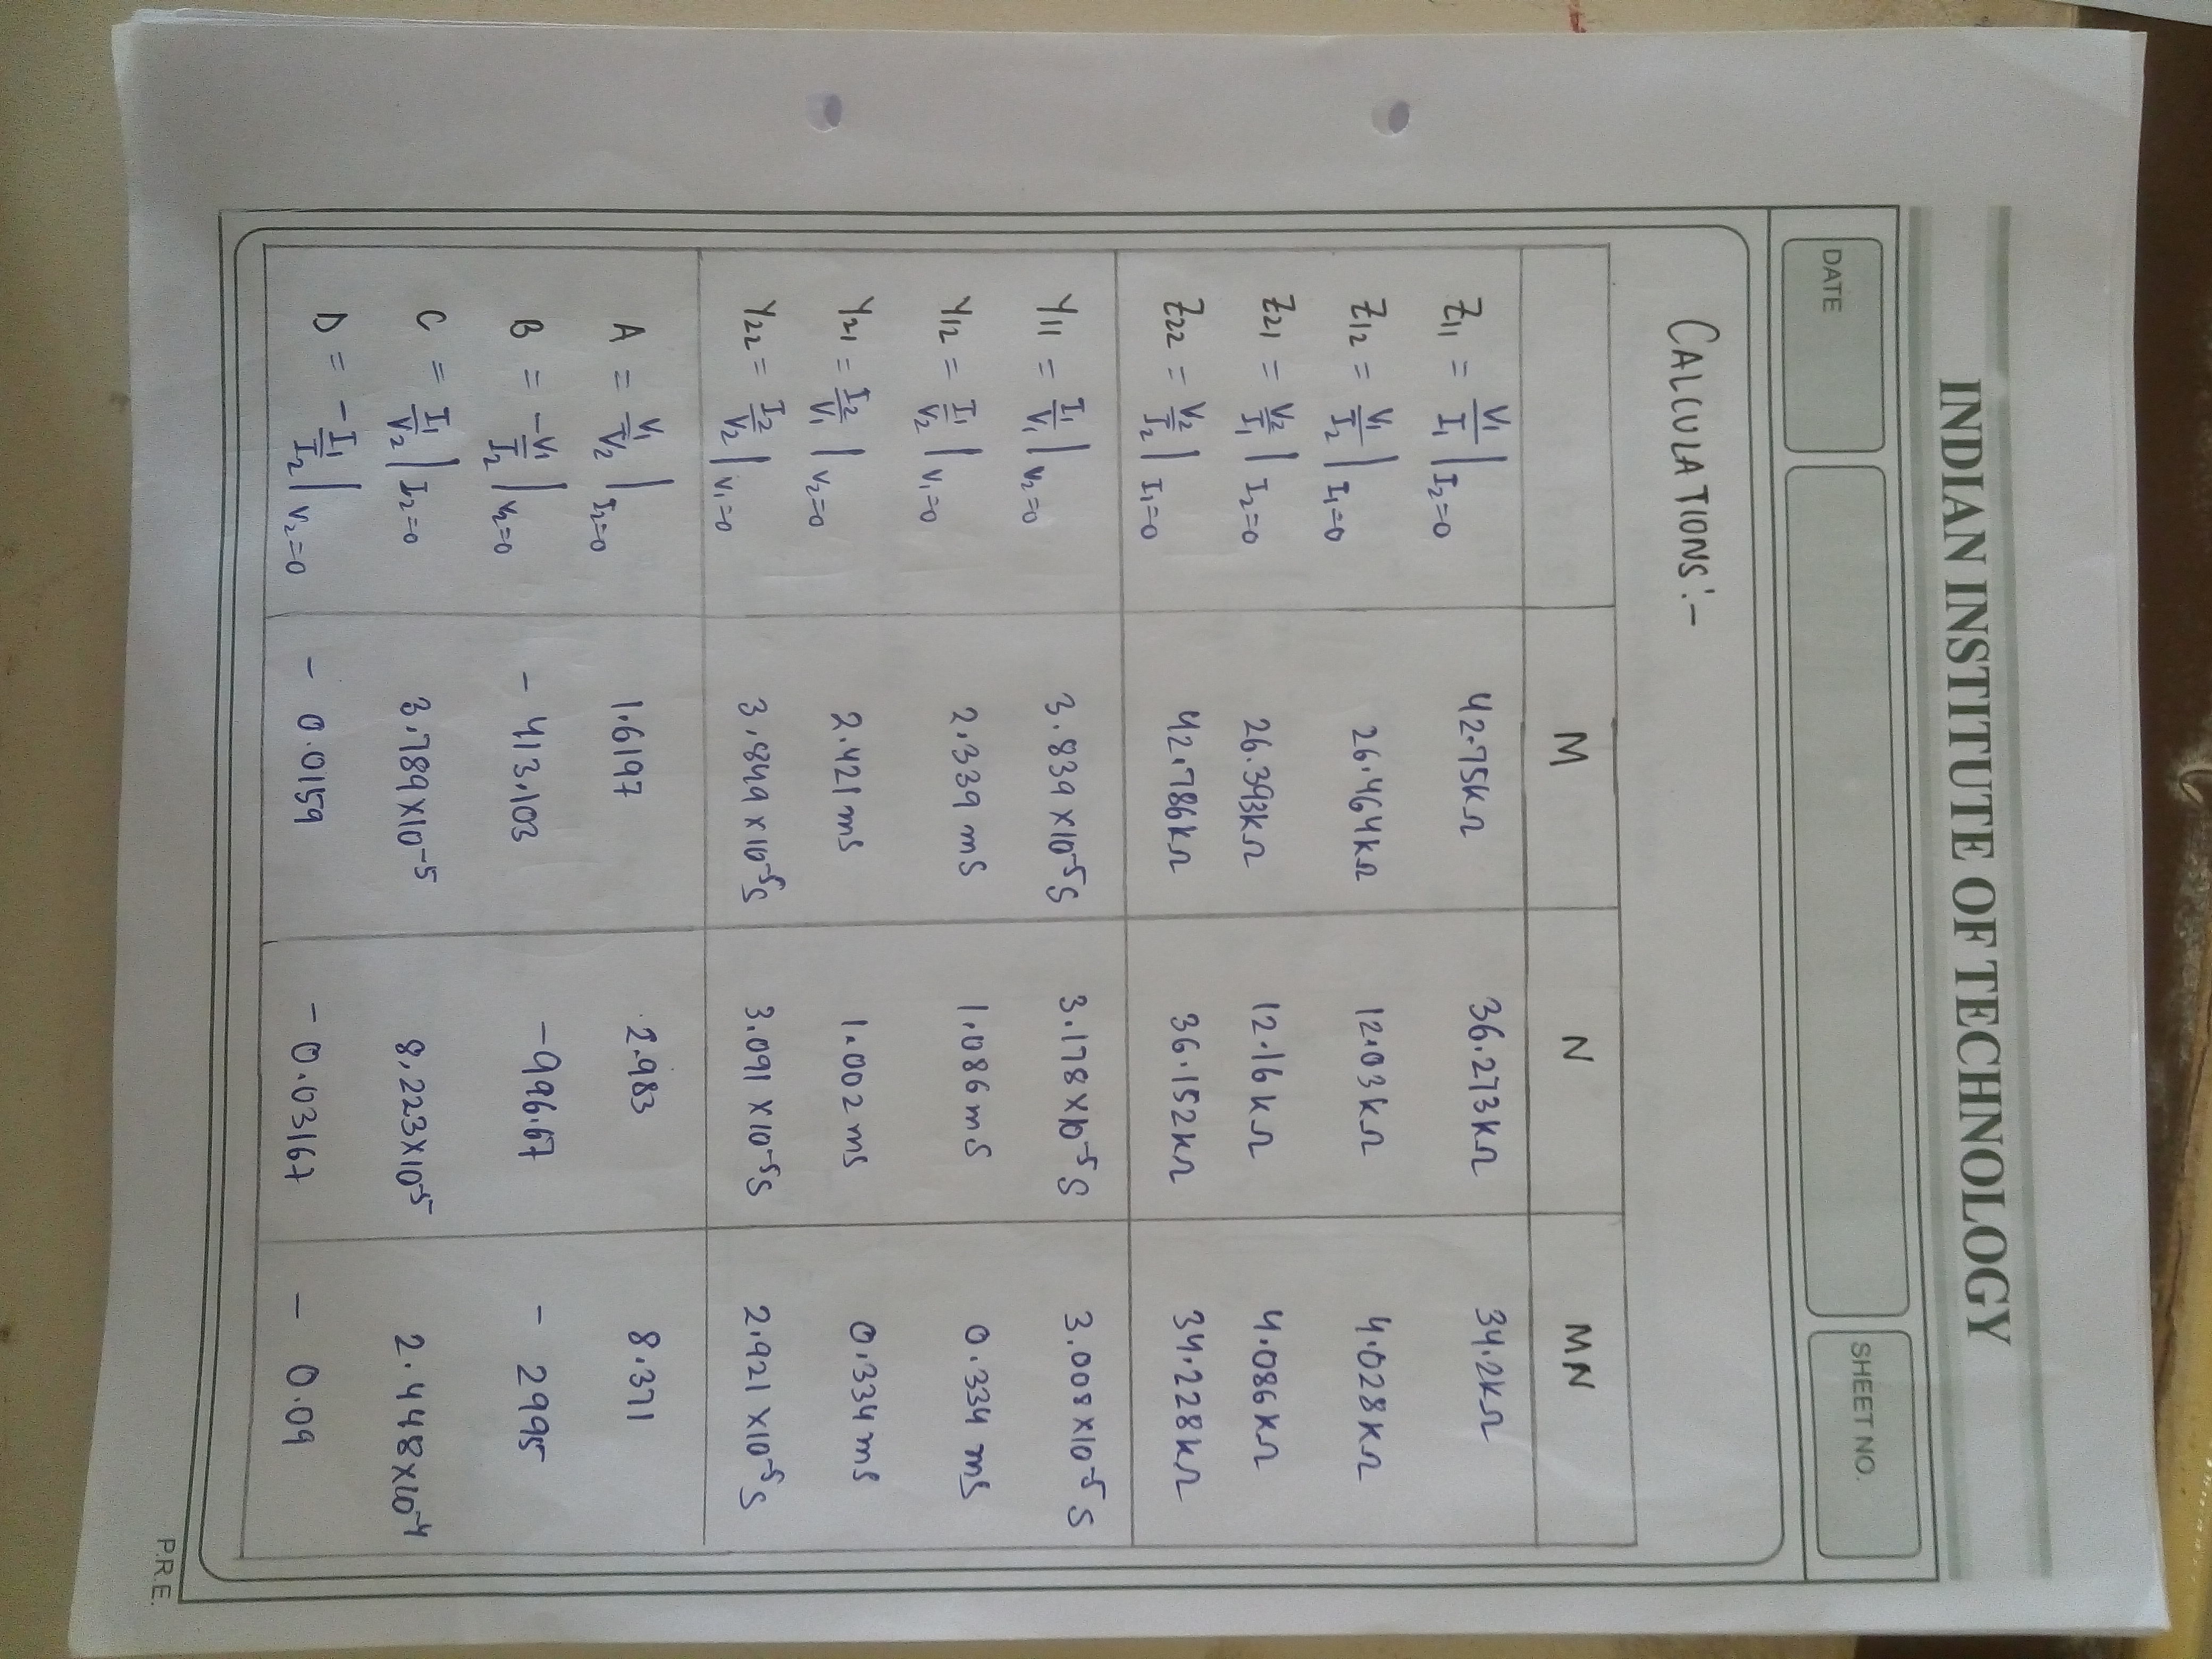 INDIAN INSTITUTE OF TECHNOLOGY
DATE
SHEET NO.
CALCULATIONS:-
M N MN
Z11 = V1/I1 | I2=0 42.75kΩ 36.273kΩ 34.2kΩ
Z12 = V1/I2 | I1=0 26.464kΩ 12.03kΩ 4.028kΩ
Z21 = V2/I1 | I2=0 26.393kΩ 12.16kΩ 4.086kΩ
Z22 = V2/I2 | I1=0 42.786kΩ 36.152kΩ 34.228kΩ
Y11 = I1/V1 | V2=0 3.839×10⁻⁵S 3.178×10⁻⁵S 3.008×10⁻⁵S
Y12 = I1/V2 | V1=0 2.339 mS 1.086mS 0.334 mS
Y21 = I2/V1 | V2=0 2.421mS 1.002mS 0.334mS
Y22 = I2/V2 | V1=0 3.849×10⁻⁵S 3.091×10⁻⁵S 2.921×10⁻⁵S
A = V1/V2 | I2=0 1.6197 2.983 8.371
B = -V1/I2 | V2=0 - 413.103 -996.67 - 2995
C = I1/V2 | I2=0 3.789×10⁻⁵ 8.223×10⁻⁵ 2.448×10⁻⁴
D = -I1/I2 | V2=0 - 0.0159 - 0.03167 - 0.09
P.R.E.